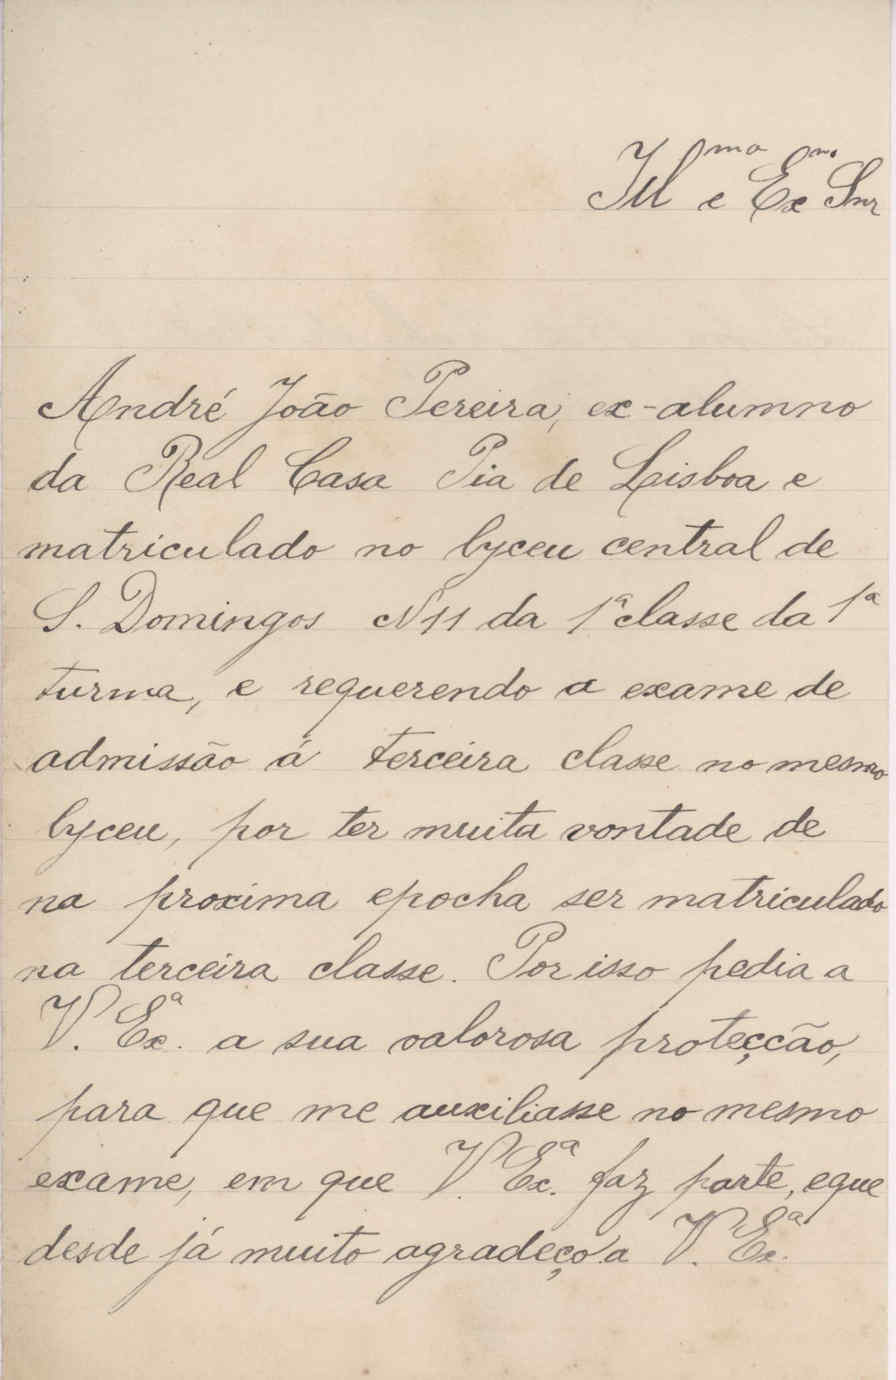 Illmo e Exmo Snr
André João Pereira, ex-alumno
da Real Casa Pia de Lisboa e
matriculado no lyceu central de
S. Domingos Nº 11 da 1ª classe da 1ª
turma, e requerendo o exame de
admissão á terceira classe no mesmo
lyceu, por ter muita vontade de
na proxima epocha ser matriculado
na terceira classe. Por isso pedia a
V. Exª. a sua valorosa protecção,
para que me auxiliasse no mesmo
exame, em que V. Exª. faz parte, e que
desde já muito agradeço a V. Exª.